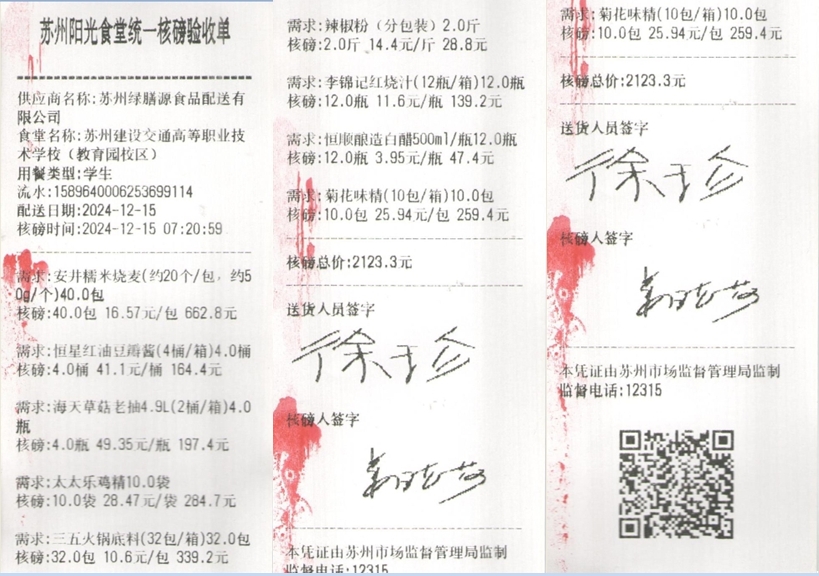 苏州阳光食堂统一核磅验收单
供应商名称:苏州绿膳源食品配送有
限公司
食堂名称:苏州建设交通高等职业技
术学校（教育园校区）
用餐类型:学生
流水:1589640006253699114
配送日期:2024-12-15
核磅时间:2024-12-15 07:20:59
需求:安井糯米烧麦(约20个/包，约5
0g/个)40.0包
核磅:40.0包 16.57元/包 662.8元
需求:恒星红油豆瓣酱(4桶/箱)4.0桶
核磅:4.0桶 41.1元/桶 164.4元
需求:海天草菇老抽4.9L(2桶/箱)4.0
瓶
核磅:4.0瓶 49.35元/瓶 197.4元
需求:太太乐鸡精10.0袋
核磅:10.0袋 28.47元/袋 284.7元
需求:三五火锅底料(32包/箱)32.0包
核磅:32.0包 10.6元/包 339.2元
需求:辣椒粉（分包装）2.0斤
核磅:2.0斤 14.4元/斤 28.8元
需求:李锦记红烧汁(12瓶/箱)12.0瓶
核磅:12.0瓶 11.6元/瓶 139.2元
需求:恒顺酿造白醋500ml/瓶12.0瓶
核磅:12.0瓶 3.95元/瓶 47.4元
需求:菊花味精(10包/箱)10.0包
核磅:10.0包 25.94元/包 259.4元
核磅总价:2123.3元
送货人员签字
徐于珍
核磅人签字
本凭证由苏州市场监督管理局监制
监督电话:12315
需求:菊花味精(10包/箱)10.0包
核磅:10.0包 25.94元/包 259.4元
核磅总价:2123.3元
送货人员签字
徐于珍
核磅人签字
本凭证由苏州市场监督管理局监制
监督电话:12315